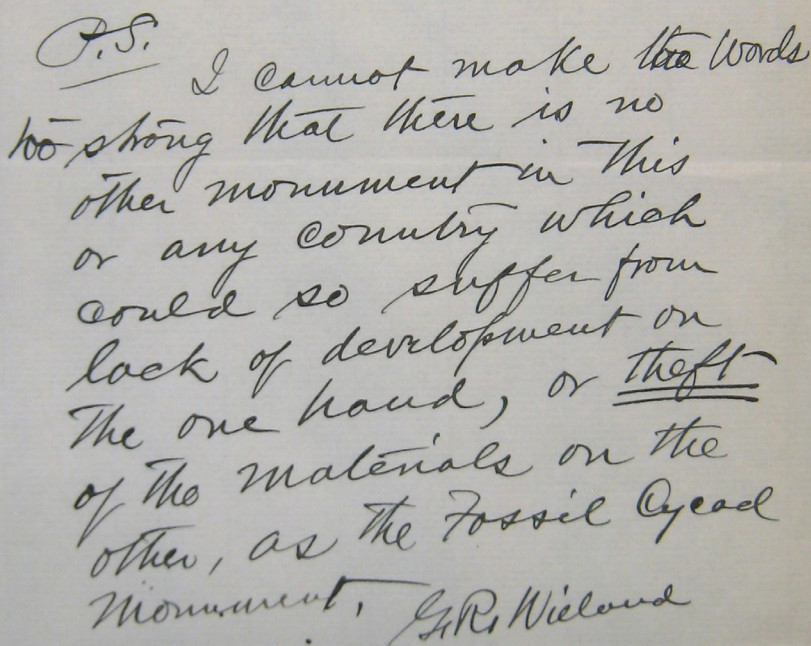 P.S.
I cannot make the Words
too strong that there is no
other monument in this
or any country which
could so suffer from
lack of development on
the one hand, or theft
of the materials on the
other, as the Fossil Cycad
Monument.
G.R. Wieland